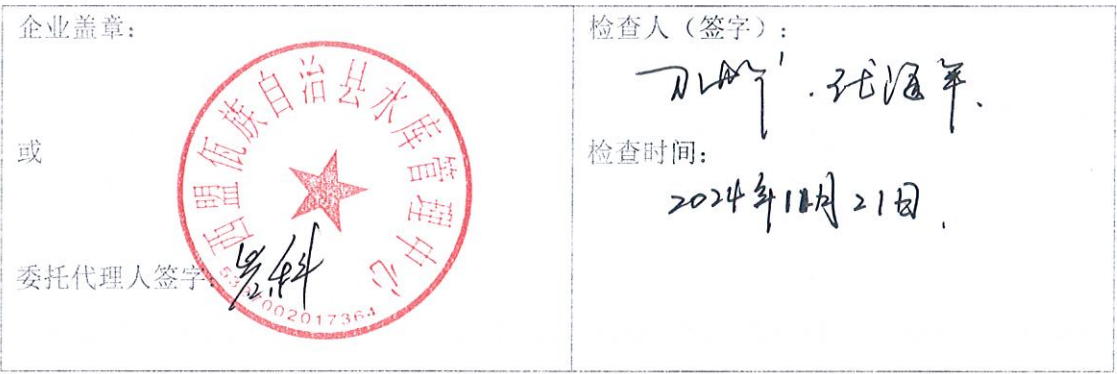 企业盖章:
西盟佤族自治县水库管理中心
或
委托代理人签字:
岩科
检查人（签字）:
检查时间:
2024年11月21日.